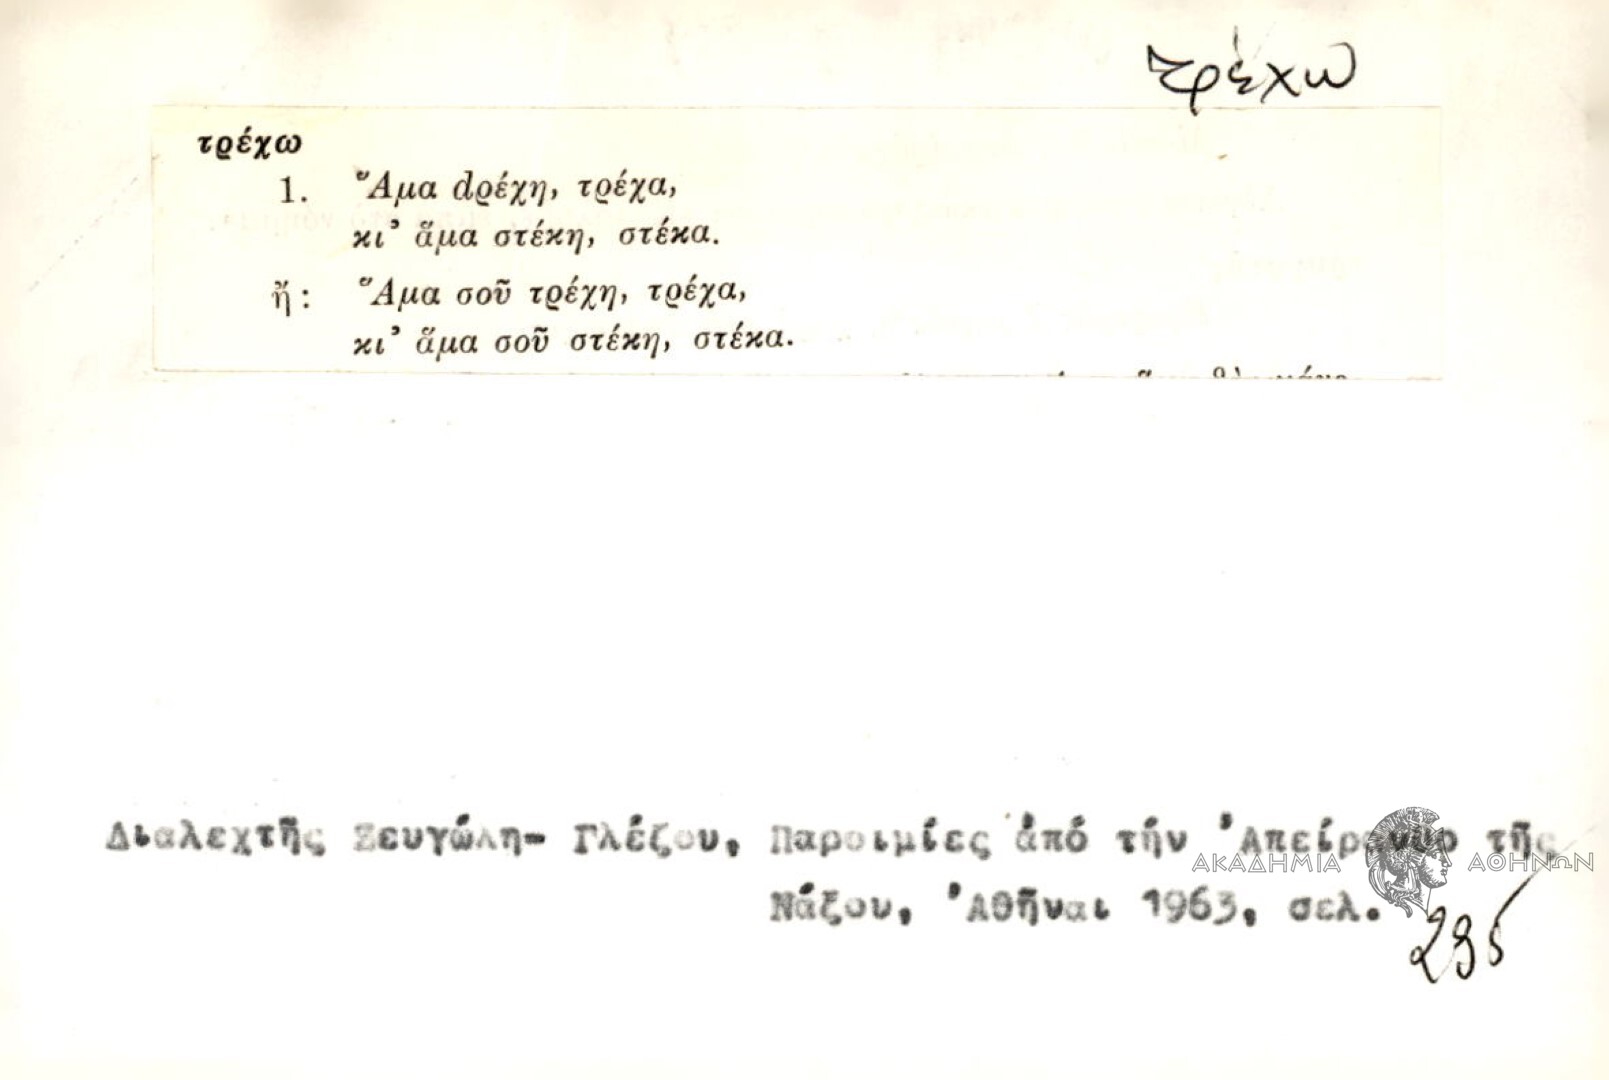 τρέχω
τρέχω
1. Ἅμα dρέχη, τρέχα,
κι' ἅμα στέκη, στέκα.
ἤ: Ἅμα σοῦ τρέχη, τρέχα,
κι' ἅμα σοῦ στέκη, στέκα.
Διαλεχτῆς Ζευγώλη- Γλέζου, Παροιμίες ἀπό τήν Ἀπείρανθο τῆς
ΑΚΑΔΗΜΙΑ ΑΘΗΝΩΝ
Νάξου, Ἀθῆναι 1963, σελ.